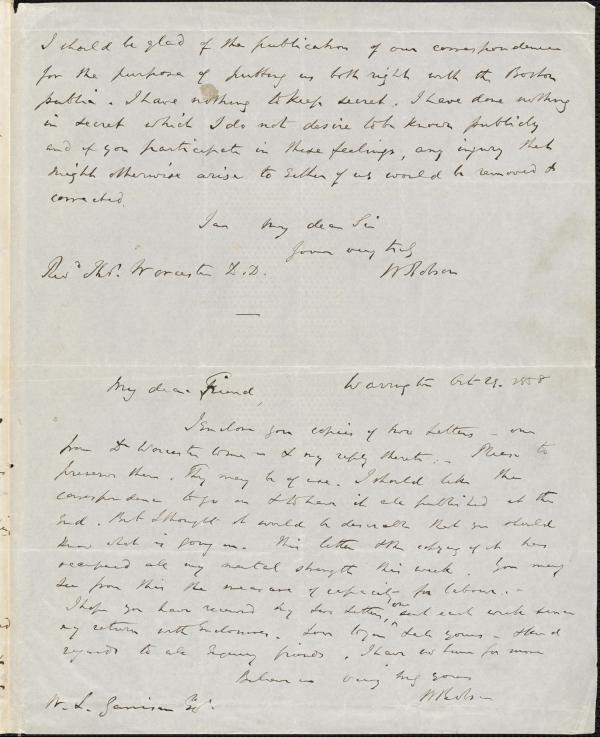 I should be glad of the publication of our correspondence
for the purpose of putting us both right with the Boston
public. I have nothing to keep secret. I have done nothing
in secret which I do not desire to be known publicly
and if you participate in these feelings, any injury that
might otherwise arise to either of us would be removed &
corrected.
I am my dear Sir
Yours very truly
Revd. Thos. Worcester D.D. W Robson
My dear Friend, Warrington Oct 29. 1858
I enclose you copies of two letters - one
from Dr Worcester to me & my reply thereto. - Please to
preserve them. They may be of use. I should like the
correspondence to go on & to have it all published at the
end. But I thought it would be desirable that you should
know what is going on. This letter & the copying of it has
occupied all my mental strength this week. You may
see from this the measure of capacity for labour. -
I hope you have received my letters, one sent each week since
my return with enclosures. Love to you & yours - & kind
regards to all enquiring friends. I have no time for more
Believe me very truly yours
W Robson
W. L. Garrison Esq.